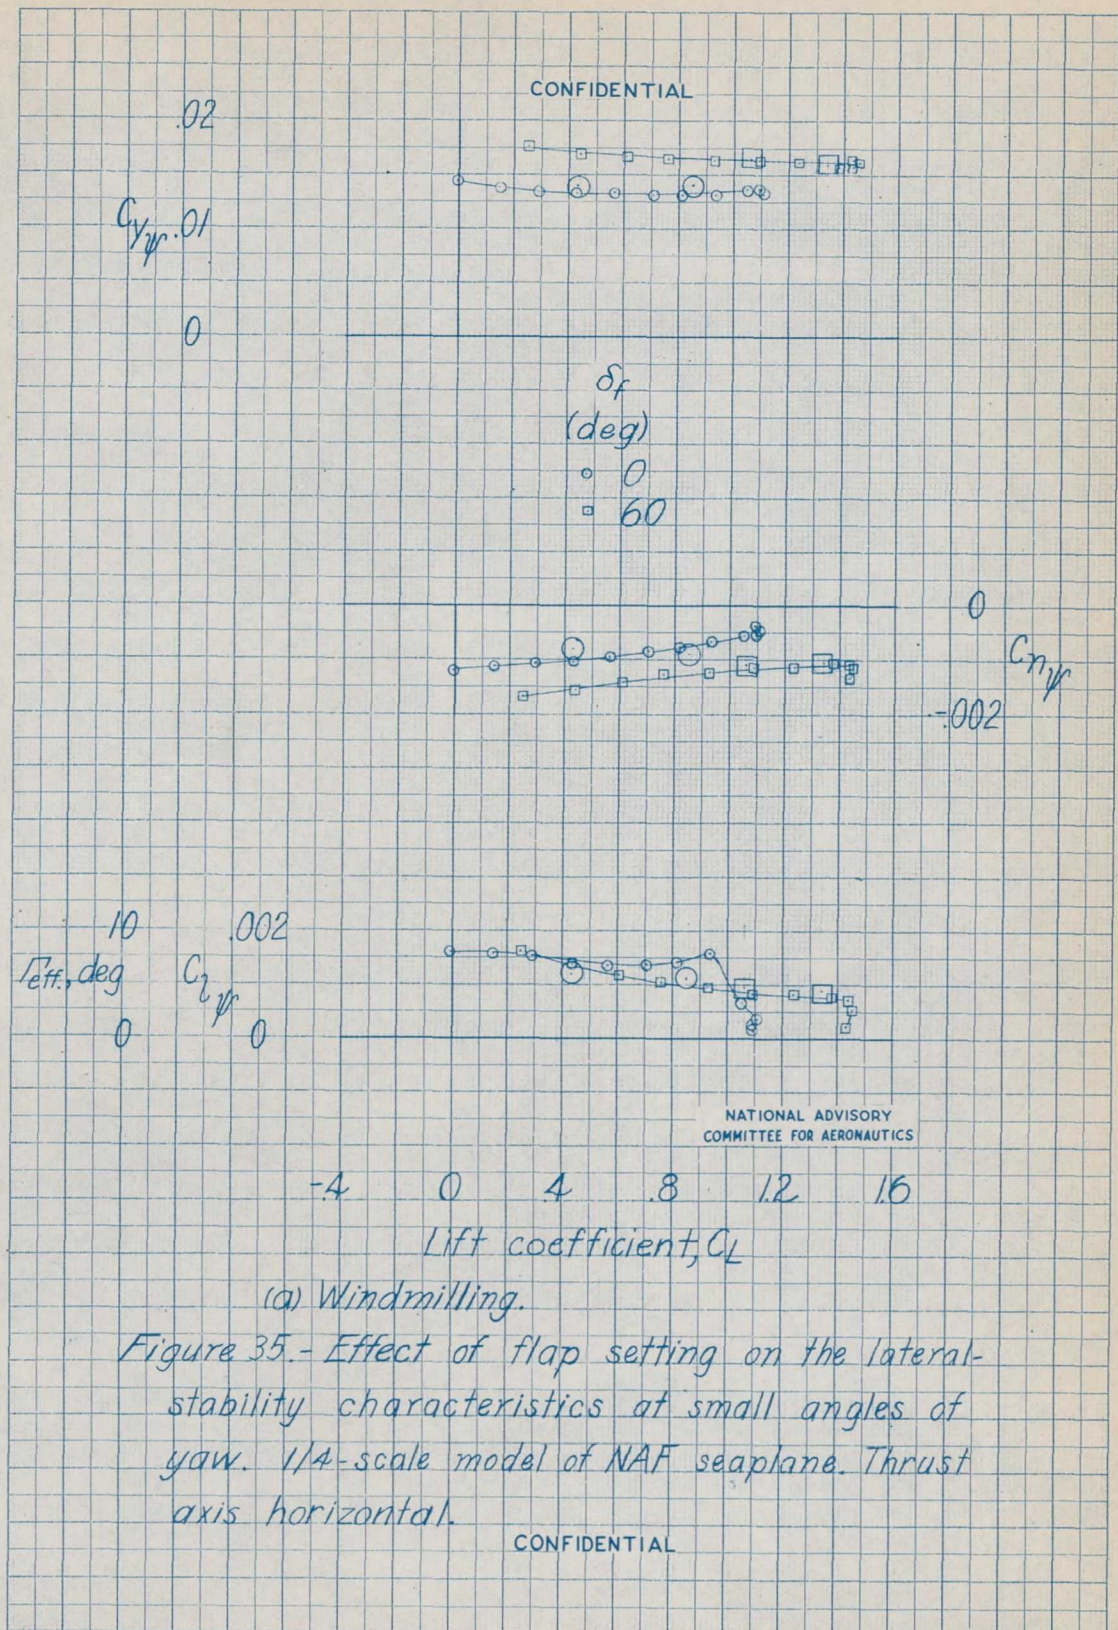 CONFIDENTIAL
.02
C_yψ .01
0
δf
(deg)
○ 0
□ 60
0
C_nψ
-.002
10 .002
Γeff., deg C_lψ
0 0
NATIONAL ADVISORY
COMMITTEE FOR AERONAUTICS
-.4 0 .4 .8 1.2 1.6
Lift coefficient, C_L
(a) Windmilling.
Figure 35.- Effect of flap setting on the lateral-
stability characteristics at small angles of
yaw. 1/4-scale model of NAF seaplane. Thrust
axis horizontal.
CONFIDENTIAL